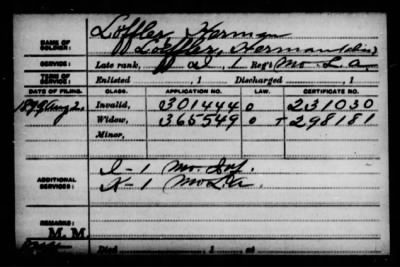 NAME OF SOLDIER: Löffler, Herman
" Loeffler, Herman (alias)
SERVICE: Late rank, Co. I, 1 Reg't Mo. L. A.
TERM OF SERVICE: Enlisted , 1 Discharged , 1
DATE OF FILING. CLASS. APPLICATION NO. LAW. CERTIFICATE NO.
Aug 2. Invalid, 301444 231030
Widow, 365549 298181
Minor,
ADDITIONAL SERVICES: I-1 Mo. Inf.
K-1 Mo L. A.
REMARKS:
M. M.
Died , 1 , at